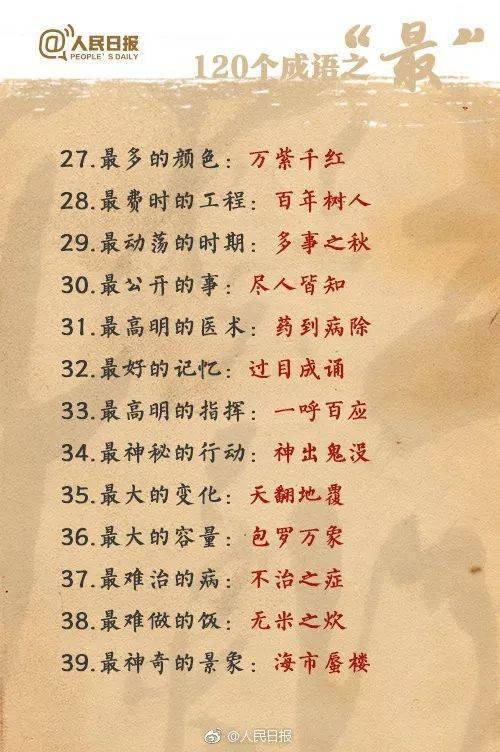 @人民日报
PEOPLE'S DAILY
120个成语之“最”
27.最多的颜色：万紫千红
28.最费时的工程：百年树人
29.最动荡的时期：多事之秋
30.最公开的事：尽人皆知
31.最高明的医术：药到病除
32.最好的记忆：过目成诵
33.最高明的指挥：一呼百应
34.最神秘的行动：神出鬼没
35.最大的变化：天翻地覆
36.最大的容量：包罗万象
37.最难治的病：不治之症
38.最难做的饭：无米之炊
39.最神奇的景象：海市蜃楼
@人民日报